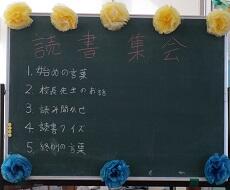 読書集会
1. 始めの言葉
2. 校長先生のお話
3. 読み聞かせ
4. 読書クイズ
5. 終りの言葉